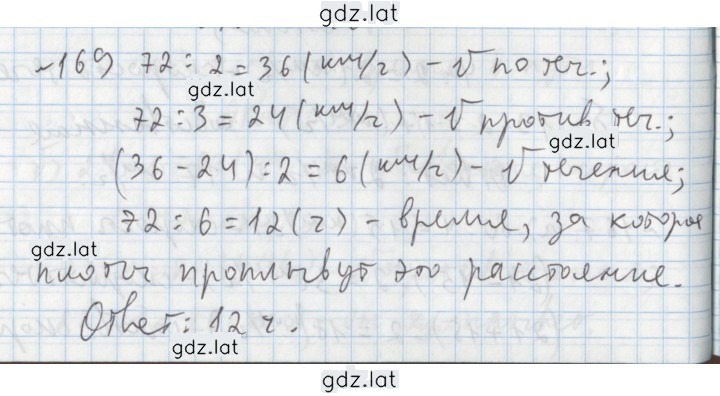 gdz.lat
№169 72 : 2 = 36 (км/ч) – V по теч.;
gdz.lat
72 : 3 = 24 (км/ч) – V против теч.;
gdz.lat
(36 - 24) : 2 = 6 (км/ч) – V течения;
72 : 6 = 12 (ч) – время, за которое
gdz.lat
плоты проплывут это расстояние.
Ответ: 12 ч.
gdz.lat
gdz.lat